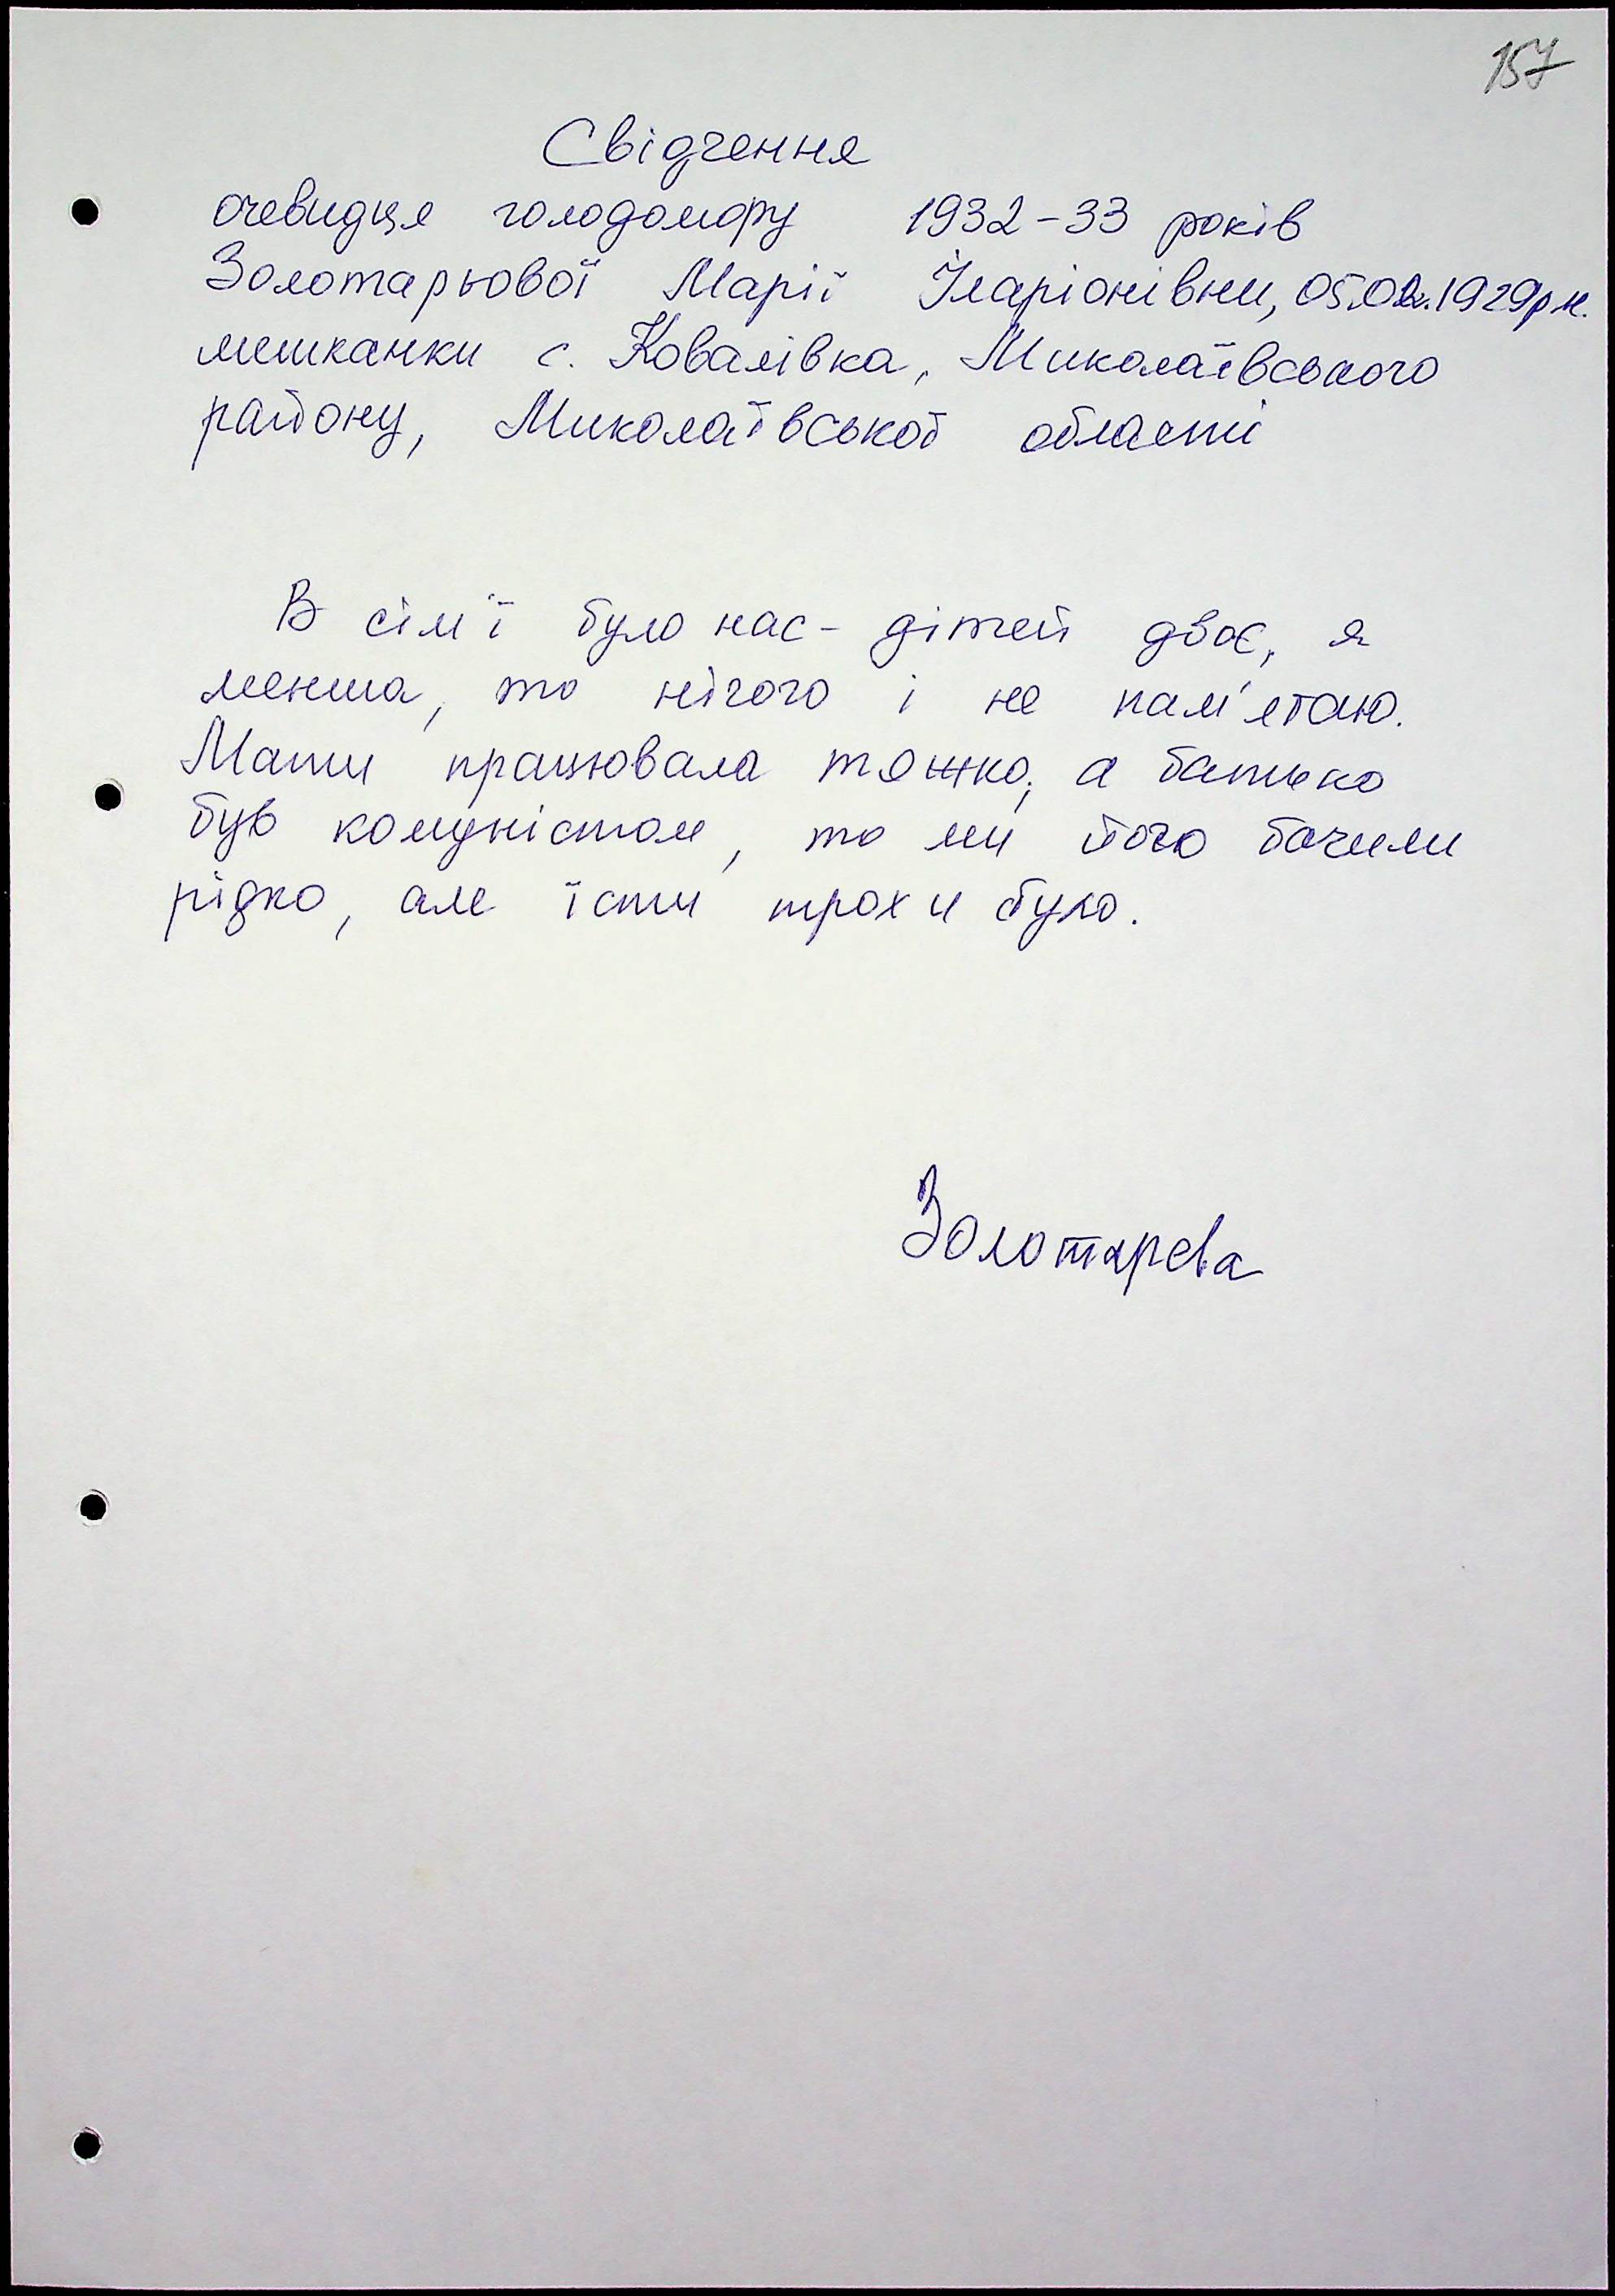 157
Свідчення
очевидця голодомору 1932-33 років
Золотарьової Марії Іларіонівни, 05.02.1929р.н.
мешканки с. Ковалівка, Миколаївського
району, Миколаївської області
В сім'ї було нас - дітей двоє, я
менша, то нічого і не пам'ятаю.
Мати працювала тяжко, а батько
був комуністом, то ми його бачили
рідко, але їсти трохи було.
Золотарева